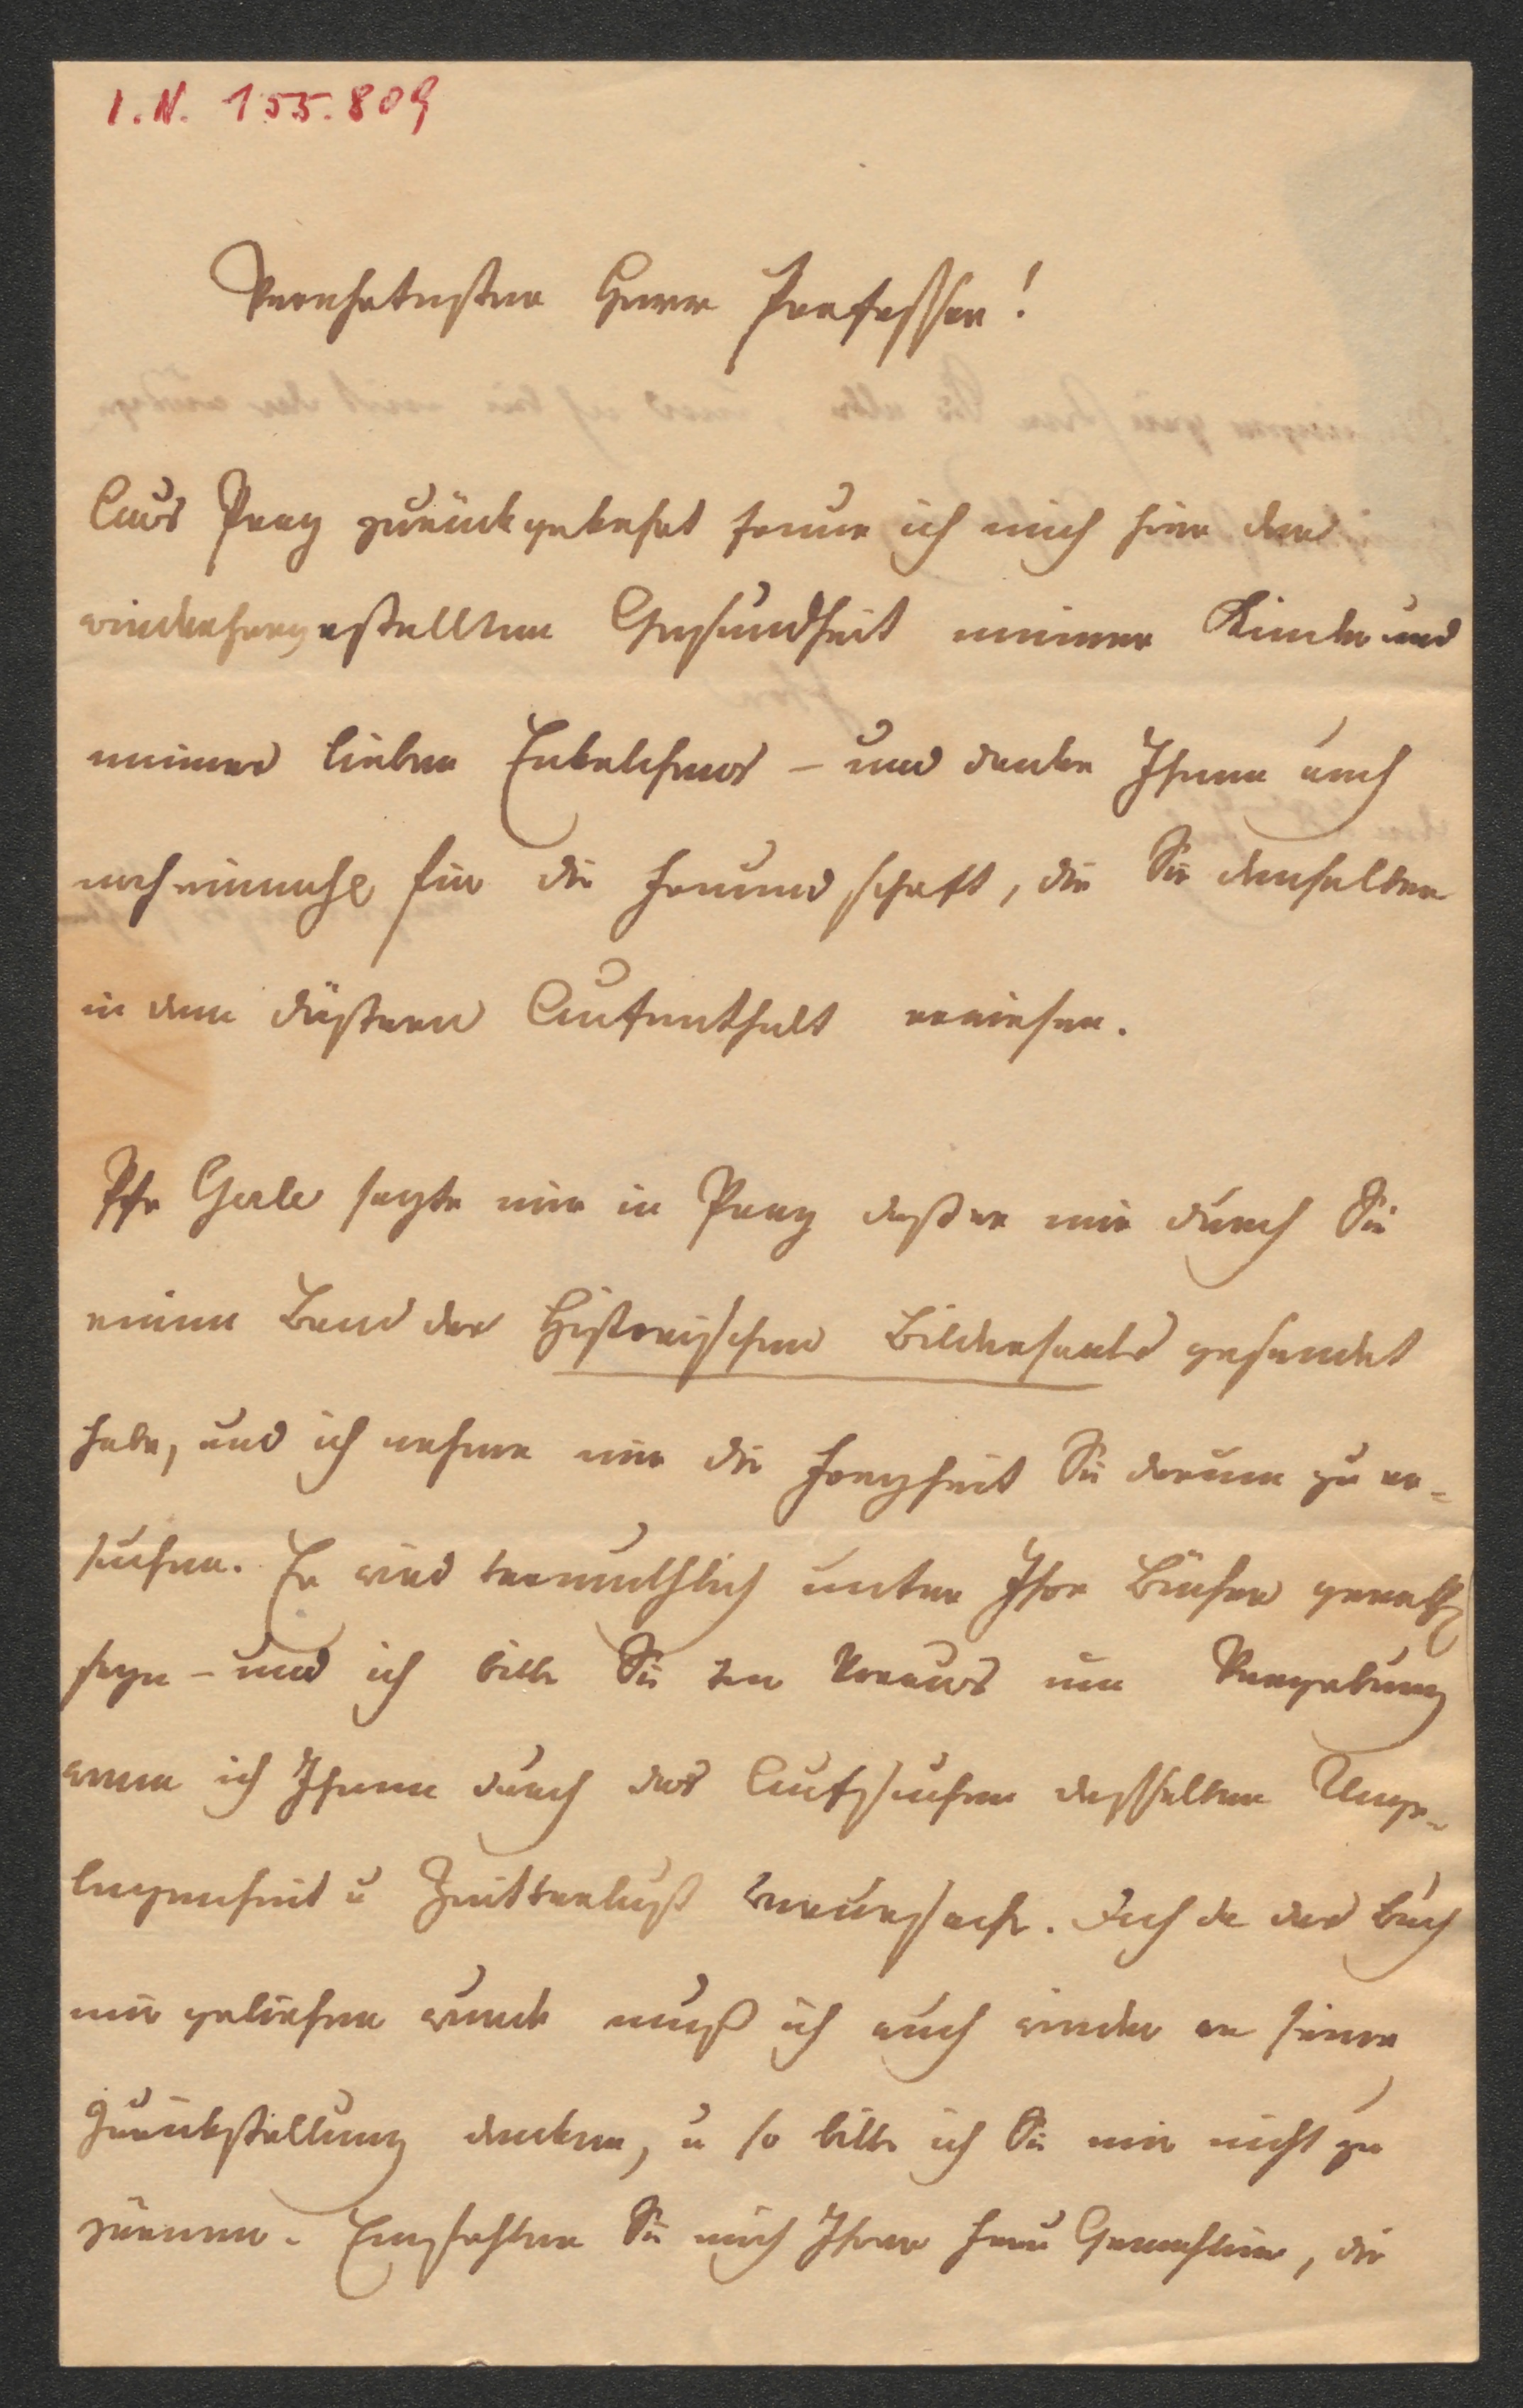 I.N. 155.809
Verehrtester Herr Professor!
Aus Prag zurückgekehrt freue ich mich hier der
wiederhergestellten Gesundheit meiner Kinder und
meines lieben Enkelchens – und danke Ihnen auch
noch einmahl für die Freundschaft, die Sie denselben
in dem düstern Aufenthalt erwiesen.
Gerle sagte mir in Prag daß er mir durch Sie
einen Band des Historischen Bildersaals gesendet
habe, und ich nehme mir die Freyheit Sie darum zu er-
suchen. Er wird vermuthlich unter Ihre Bücher gerath
seyn – und ich bitte Sie im Voraus um Vergebung
wenn ich Ihnen durch das Aufsuchen desselben Unge-
legenheit u Zeitverlust verursache. Doch da das Buch
mir geliehen wurde muß ich auch wieder an seine
Zurückstellung denken, u so bitte ich Sie mir nicht zu
zürnen. Empfehlen Sie mich Ihrer Frau Gemahlinn, die